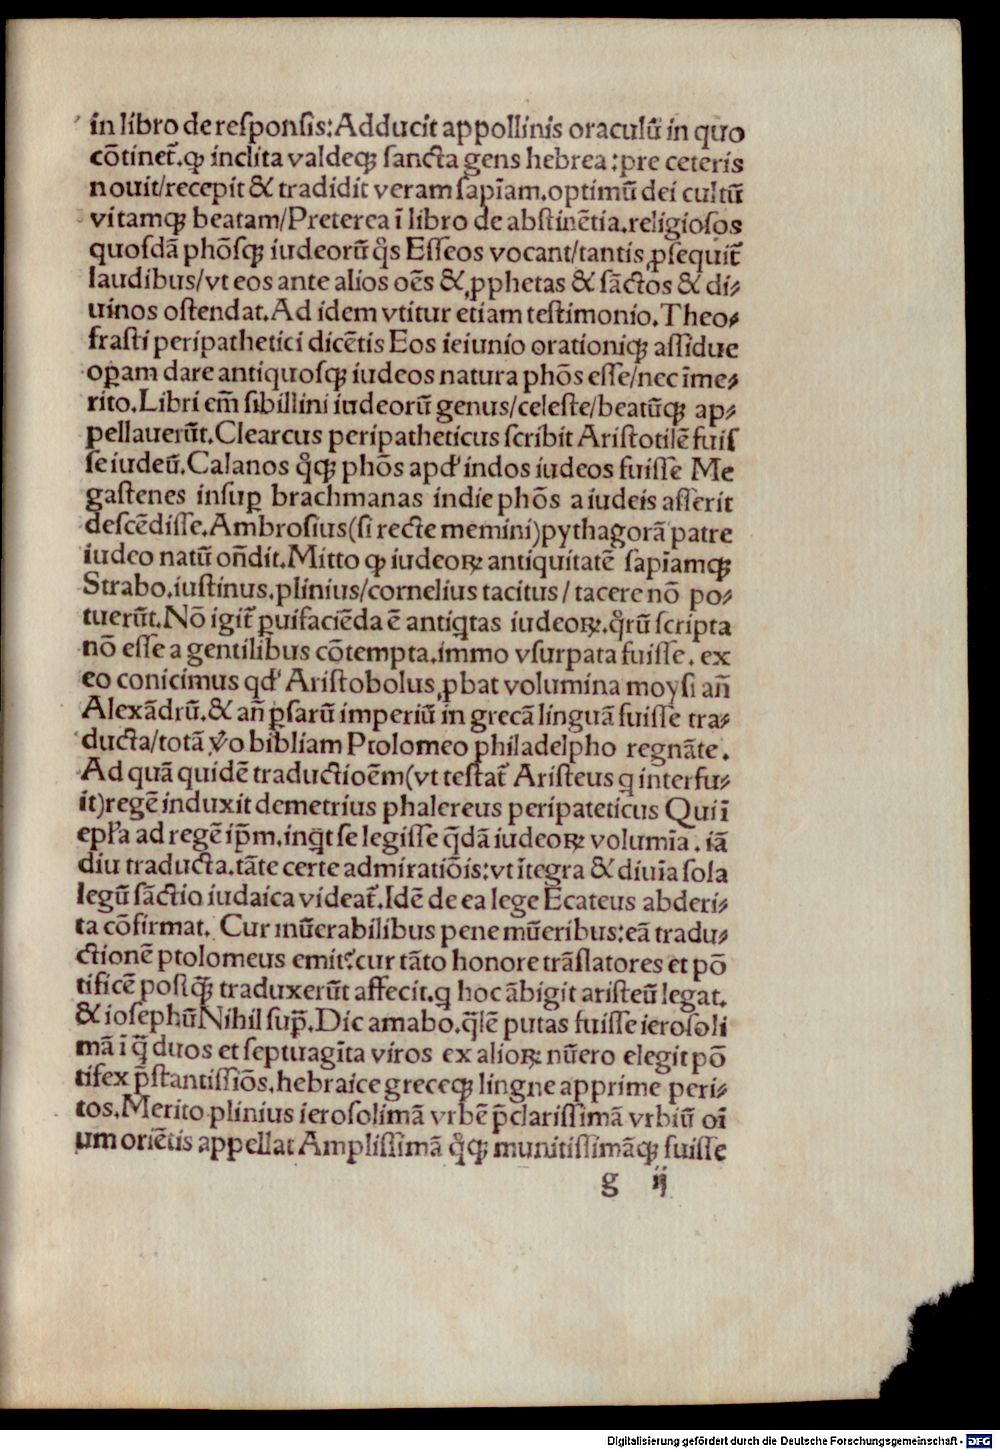 in libro de responsis:Adducit appollinis oraculū in quo
cōtinet᷑.ꝙ inclita valdeqꝫ sancta gens hebrea:pre ceteris
nouit/recepit & tradidit veram sapīam.optimū dei cultū
vitamqꝫ beatam/Preterea ī libro de abstinētia.religiosos
quosdā phōsqꝫ iudeorū qͦs Esseos vocant/tantis ꝓsequit᷑
laudibus/vt eos ante alios oēs & ꝓphetas & sāctos & di⸗
uinos ostendat.Ad idem vtitur etiam testimonio.Theo⸗
frasti peripathetici dicētis Eos ieiunio orationiqꝫ assidue
oꝑam dare antiquosqꝫ iudeos natura phōs esse/nec īme⸗
rito.Libri em̄ sibillini iudeorū genus/celeste/beatūqꝫ ap⸗
pellauerūt.Clearcus peripatheticus scribit Aristotilē fuis
se iudeū.Calanos qͦqꝫ phōs apdʼ indos iudeos fuisse Me
gastenes insuꝑ brachmanas indie phōs a iudeis asserit
descēdisse.Ambrosius(si recte memini)pythagorā patre
iudeo natū on̄dit.Mitto ꝙ iudeoꝝ antiquitatē sapīamqꝫ
Strabo.iustinus.plinius/cornelius tacitus / tacere nō po⸗
tuerūt.Nō igit᷑ ꝑuifaciēda ē antiqͥtas iudeoꝝ.qͦrū scripta
nō esse a gentilibus cōtempta.immo vsurpata fuisse. ex
eo conicimus qdʼ Aristobolus ꝓbat volumina moysi an̄
Alexādrū.& an̄ ꝑsarū imperiū in grecā linguā fuisse tra⸗
ducta/totā v̊o bibliam Ptolomeo philadelpho regnāte.
Ad quā quidē traductioēm(vt testat᷑ Aristeus qͥ interfu⸗
it)regē induxit demetrius phalereus peripateticus Qui ī
epl̄a ad regē ip̄m.inqͥt se legisse q̄dā iudeoꝝ volumīa. iā
diu traducta.tāte certe admiratiōis:vt ītegra & diuīa sola
legū sāctio iudaica videat᷑.Idē de ea lege Ecateus abderi⸗
ta cōfirmat. Cur inūerabilibus pene mūeribus:eā tradu⸗
ctionē ptolomeus emit:ʼcur tāto honore trāslatores et pō
tificē postq̄ꝫ traduxerūt affecit.qͥ hoc ābigit aristeū legat.
& iosephū Nihil sup̄.Dic amabo.q̄lē putas fuisse ierosoli
mā ī q̄ duos et septuagīta viros ex alioꝝ nūero elegit pō
tifex p̄stantissiōs.hebraice greceqꝫ lingne apprime peri⸗
tos.Merito plinius ierosolimā vrbē p̄clarissimā vrbiū oī
um oriētis appellat Amplissimā qͦqꝫ munitissimāqꝫ fuisse
g ij
Digitalisierung gefördert durch die Deutsche Forschungsgemeinschaft - DFG